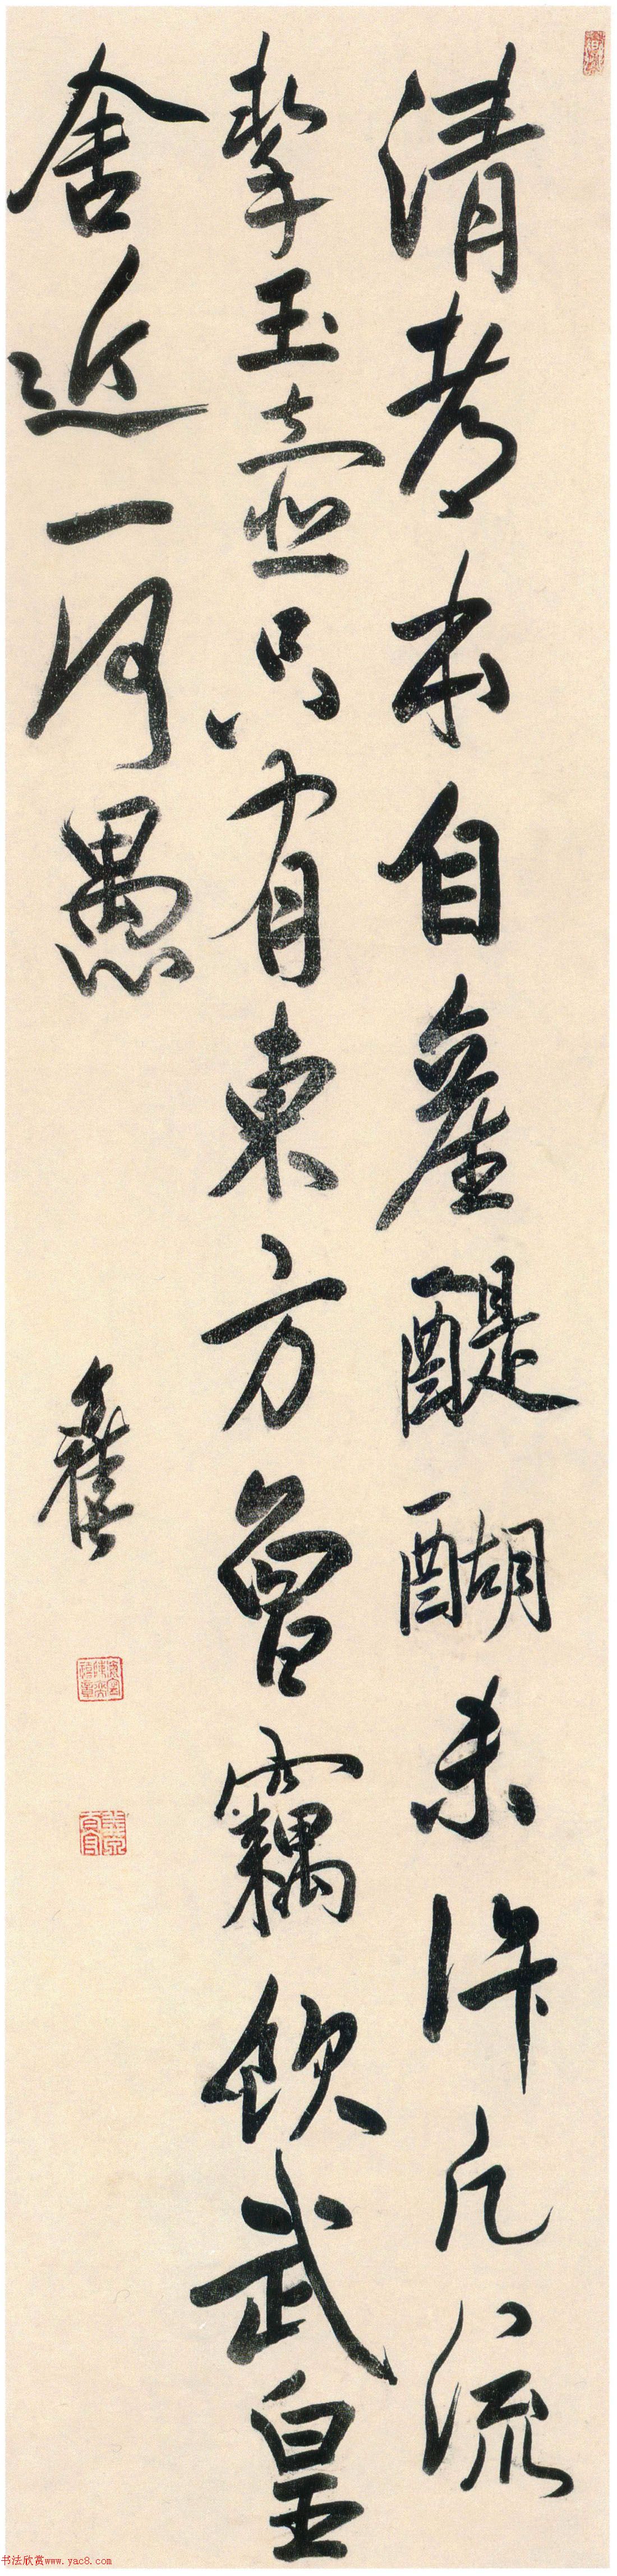 清都本自產醍醐未許凡流
挈玉壺只有東方曾竊飲武皇
舍近一何愚
奕禧
书法欣赏www.yac8.com